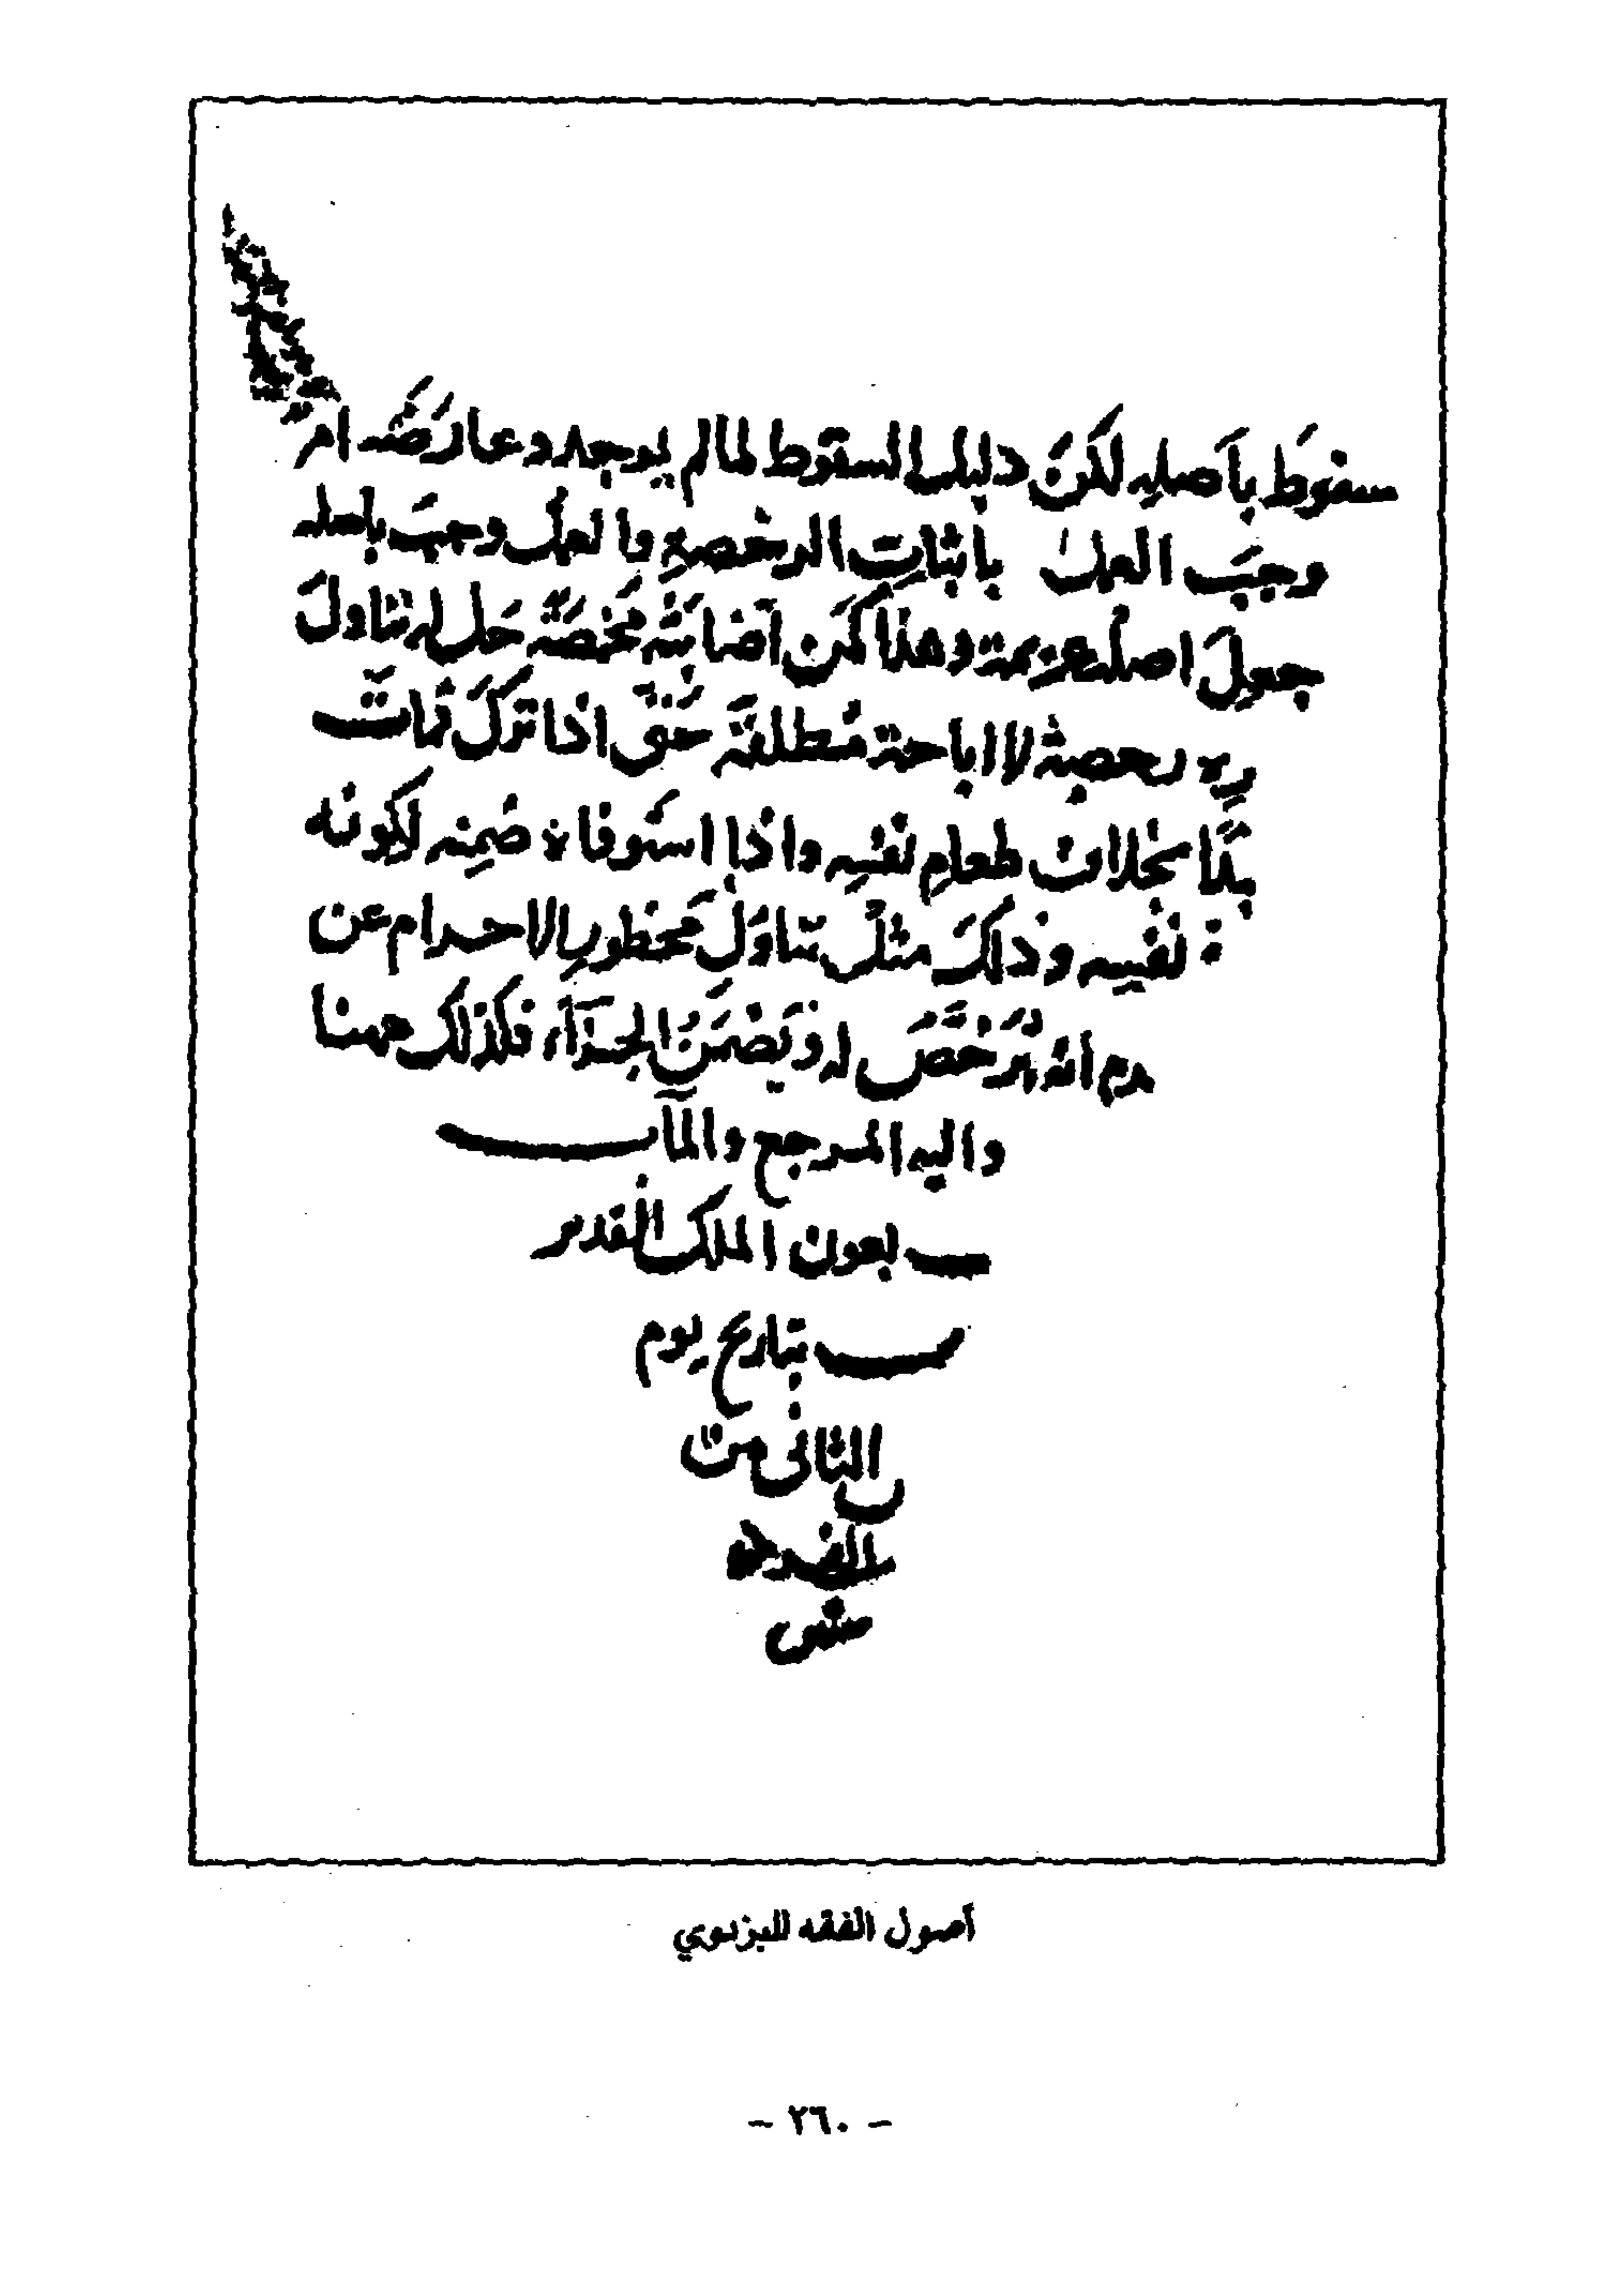 سقوطَ بأصله لكنّ دليل السقوط لما لم يوجد وعارضَه امر
وجبَ العملُ باثباتِ الرخصةِ والعملُ وجبَ باصله
جعِلَ اصله عزيمة وهذا كمَن اَصَابَتْه مخمصَة حَل له تناولَ
رخصةً لا اباحة مُطلقةً حتّى اذا تركَ فمات
بخلاف طعامِ نفسِه واذا استوفاه ضمِنه لكونه
نفسِه وذلكَ مثلُ تناوُلِ محظورِ الاحرام عن
انه يُرَخّصَ له ويَضمَنُ الجزآء فكذلك ههنا
واليه المرجع والمآب
بعون الملك القدير
بتاريخ يوم
الثانى من

أصول الفقه للبزدوي
- ٢٦٠ -